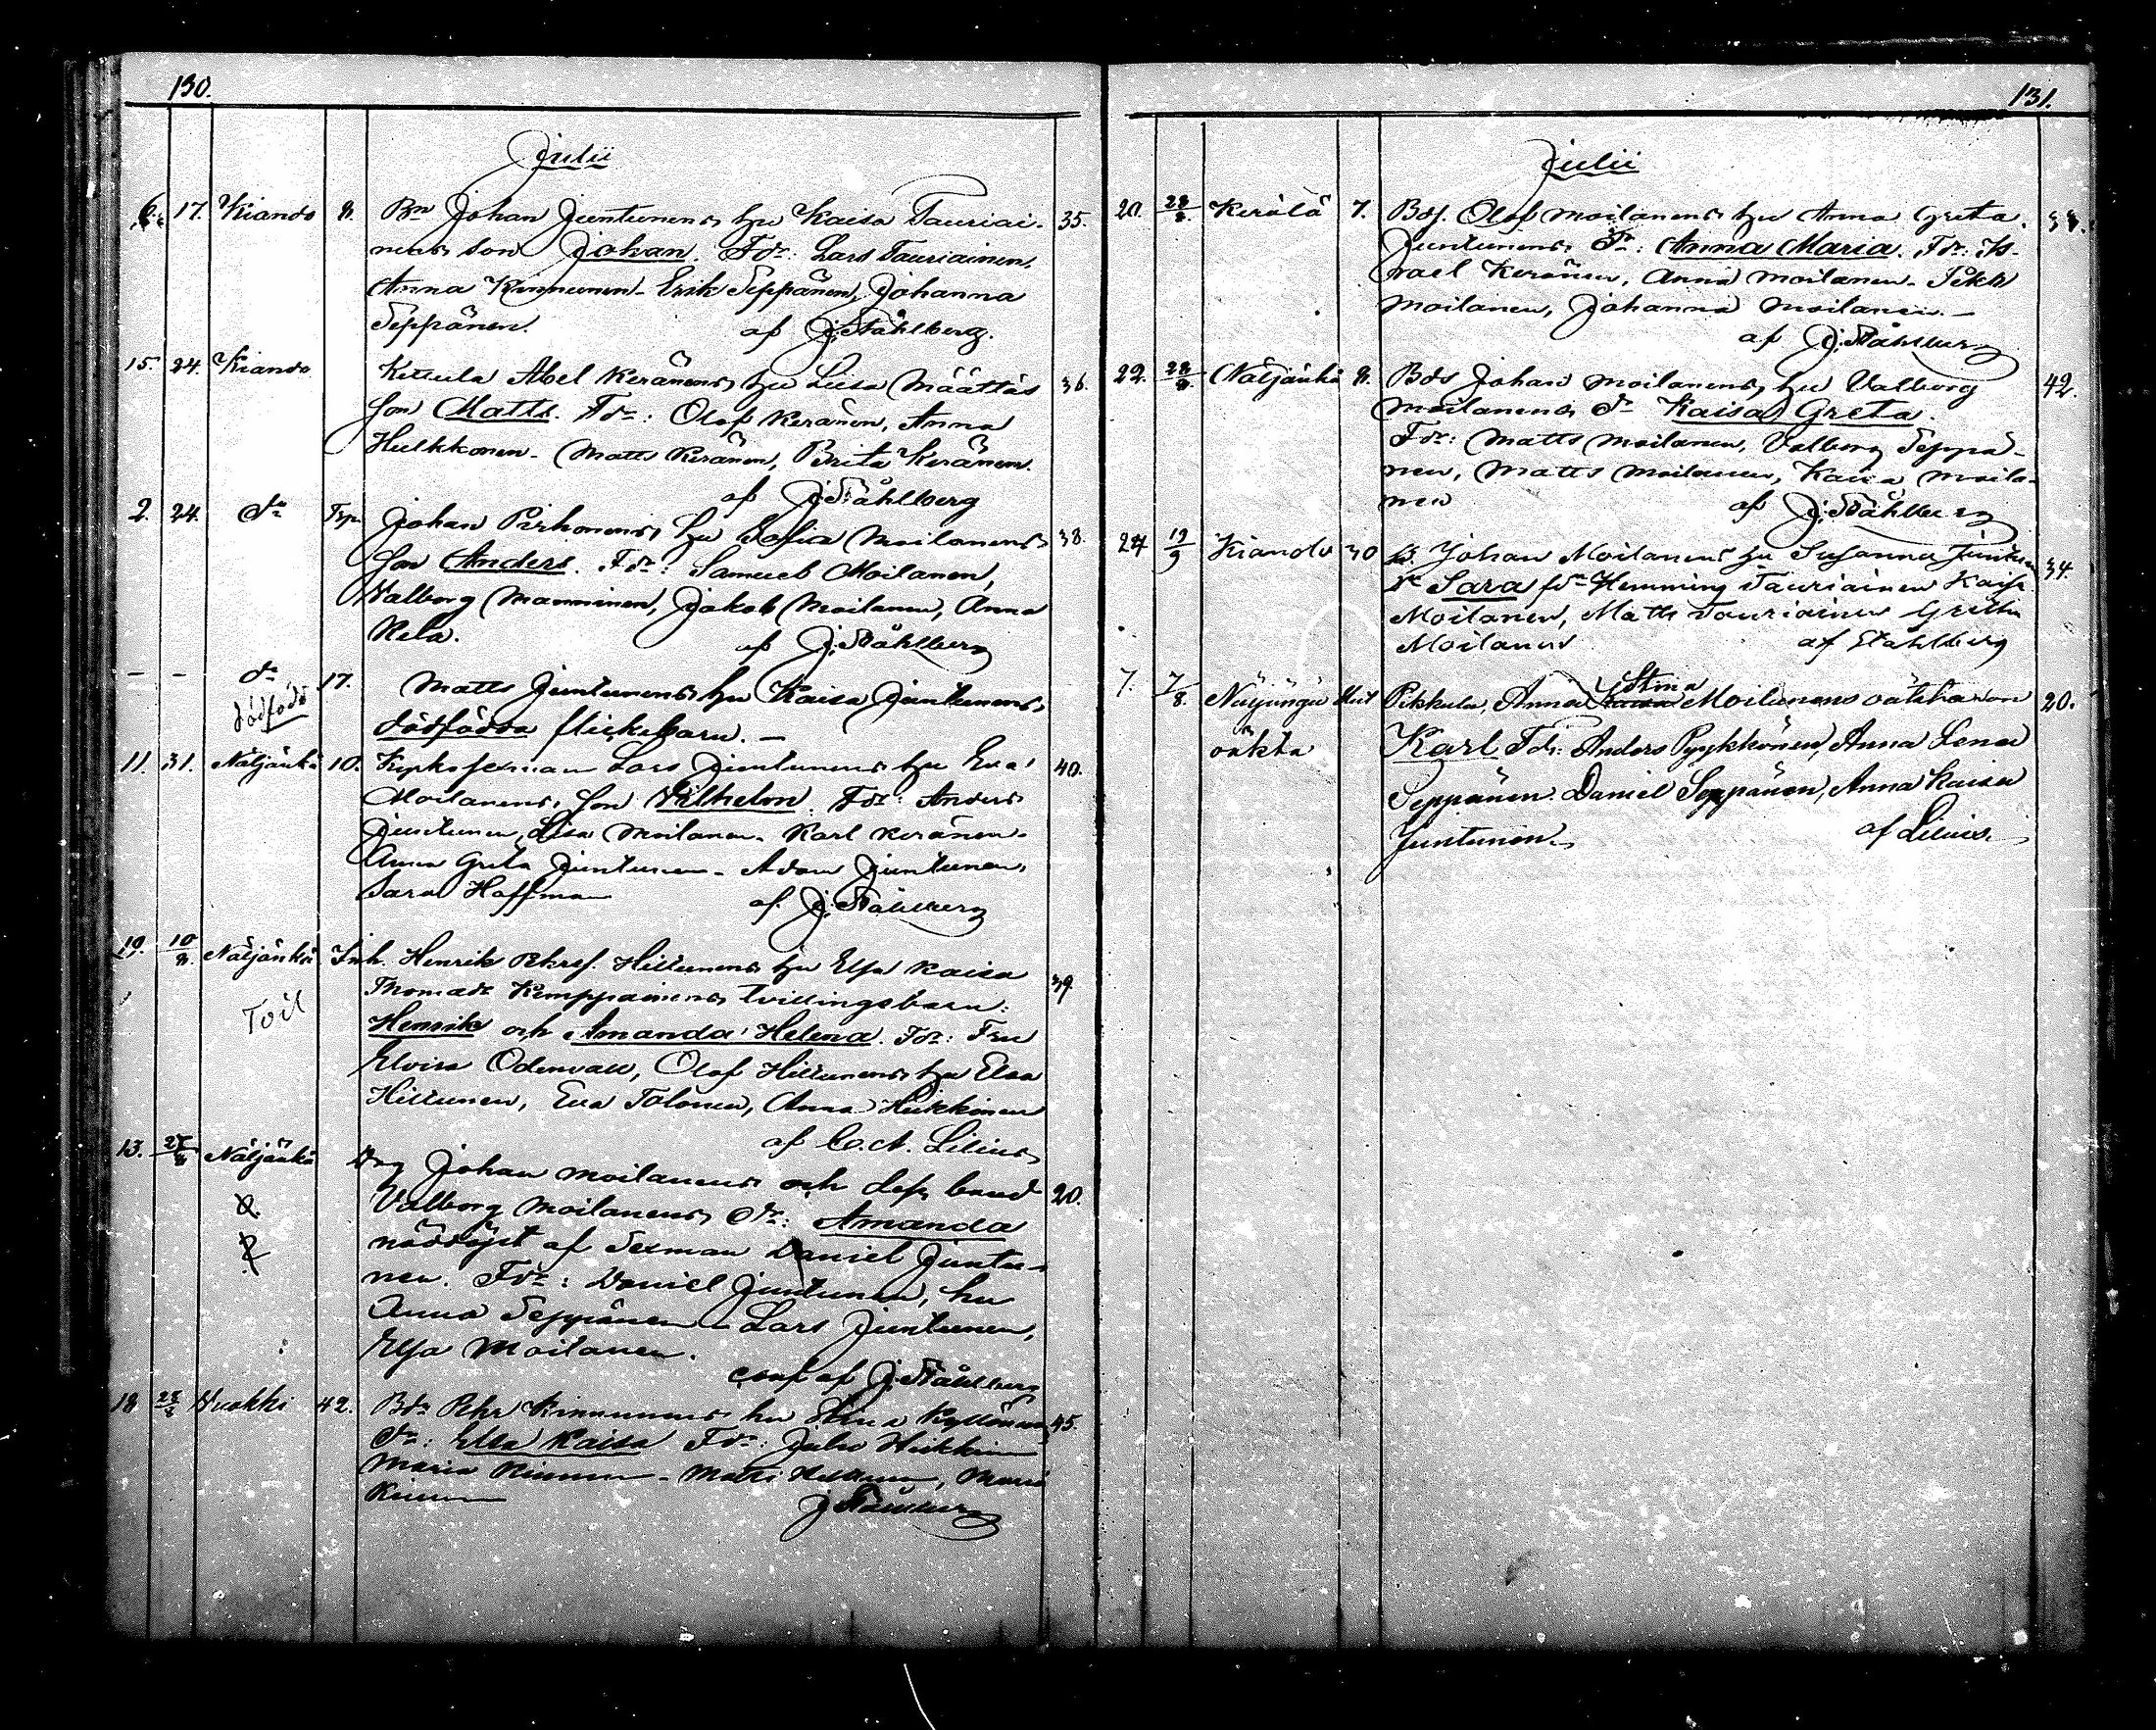 130.
Julii
6. 17. Kiando 8. Bn Johan Juntunens hu Kaisa Tauriai- 35.
nens son Johan. Fdr: Lars Tauriainen,
Anna Kinnunen - Erik Seppänen, Johanna
Seppänen. af J. Ståhlberg.
15. 24. Kiando Abel Keränens hu Liisa Määttäs 36.
son Matts. Fdr: Olof Keränen, Anna
Hulkkonen - Matts Keränen, Brita Keränen.
af J. Ståhlberg
2. 24. do Johan Pirhonens hu Sofia Moilanens 38.
son Anders. Fdr: Samuel Moilanen,
Valborg Manninen, Jakob Moilanen, Anna
Kela. af J. Ståhlberg
- - do 17. Matts Juntunens hu Kaisa Juntunens
dödfödd
dödfödda flickebarn. -
11. 31. Näljänkä 10. Lars Juntunens hu Eva 40.
Moilanens son Vilhelm. Fdr: Anders
Juntunen, Lisa Moilanen - Karl Keränen -
Anna Greta Juntunen - Adam Juntunen,
Sara Hoffman af J. Ståhlberg
19. 10/8. Näljänkä Inh. Henrik Hiltunens hu Elsa Kaisa 39
Thomasdr Kemppainens tvillingsbarn:
Henrik och Amanda Helena. Fdr: Fru
Elvira Odenvall, Olof Hiltunens hu Elsa
Hiltunen, Eva Tolonen, Anna Heikkinen
af C. A. Lilius
13. 28/8 Näljänkä Drg Johan Moilanens och 20.
Valborg Moilanens dr: Amanda
nöddöpt af Sexman Daniel Juntu-
nen. Fdr: Daniel Juntunen, hu
Anna Seppänen - Lars Juntunen,
Elsa Moilanen.
conf af J. Ståhlberg
18 28/8 Vuokki 42. Bdr Pehr Kinnunens hu Stina Kyllönens 45.
dr: Elsa Kaisa Fdr: Heikkinen
Maria Kinnunen - Matts, Maria
J. Ståhlberg
131.
Julii
20. 28/8. Kerälä 7. Bds. Olof Moilanens hu Anna Greta
Juntunens dr: Anna Maria. Fdr: Is-
rael Keränen, Anna Moilanen -
Moilanen, Johanna Moilanen. -
af J. Ståhlberg
22. 28/8. Näljänkä 8. Bds Johan Moilanens hu Valborg 42.
Moilanens dr Kaisa Greta.
Fdr: Matts Moilanen, Valborg Seppä-
nen, Matts Moilanen, Kaisa Moila-
nen af J. Ståhlberg
27 19/9 Kiando 30 B. Johan Moilanens hu Susanna Juntunen 34.
dr Sara fdr Hemming Tauriainen Kaisa
Moilanen, Matts Tauriainen Greta
Moilanen af Stahlberg
7. 7/8. Anna Stina Moilanens oäkta son 20.
oäkta Karl Fdr: Anders Pyykkönen, Anna Lena
Seppänen. Daniel Seppänen, Anna Kaisa
Juntunen. af Lilius.